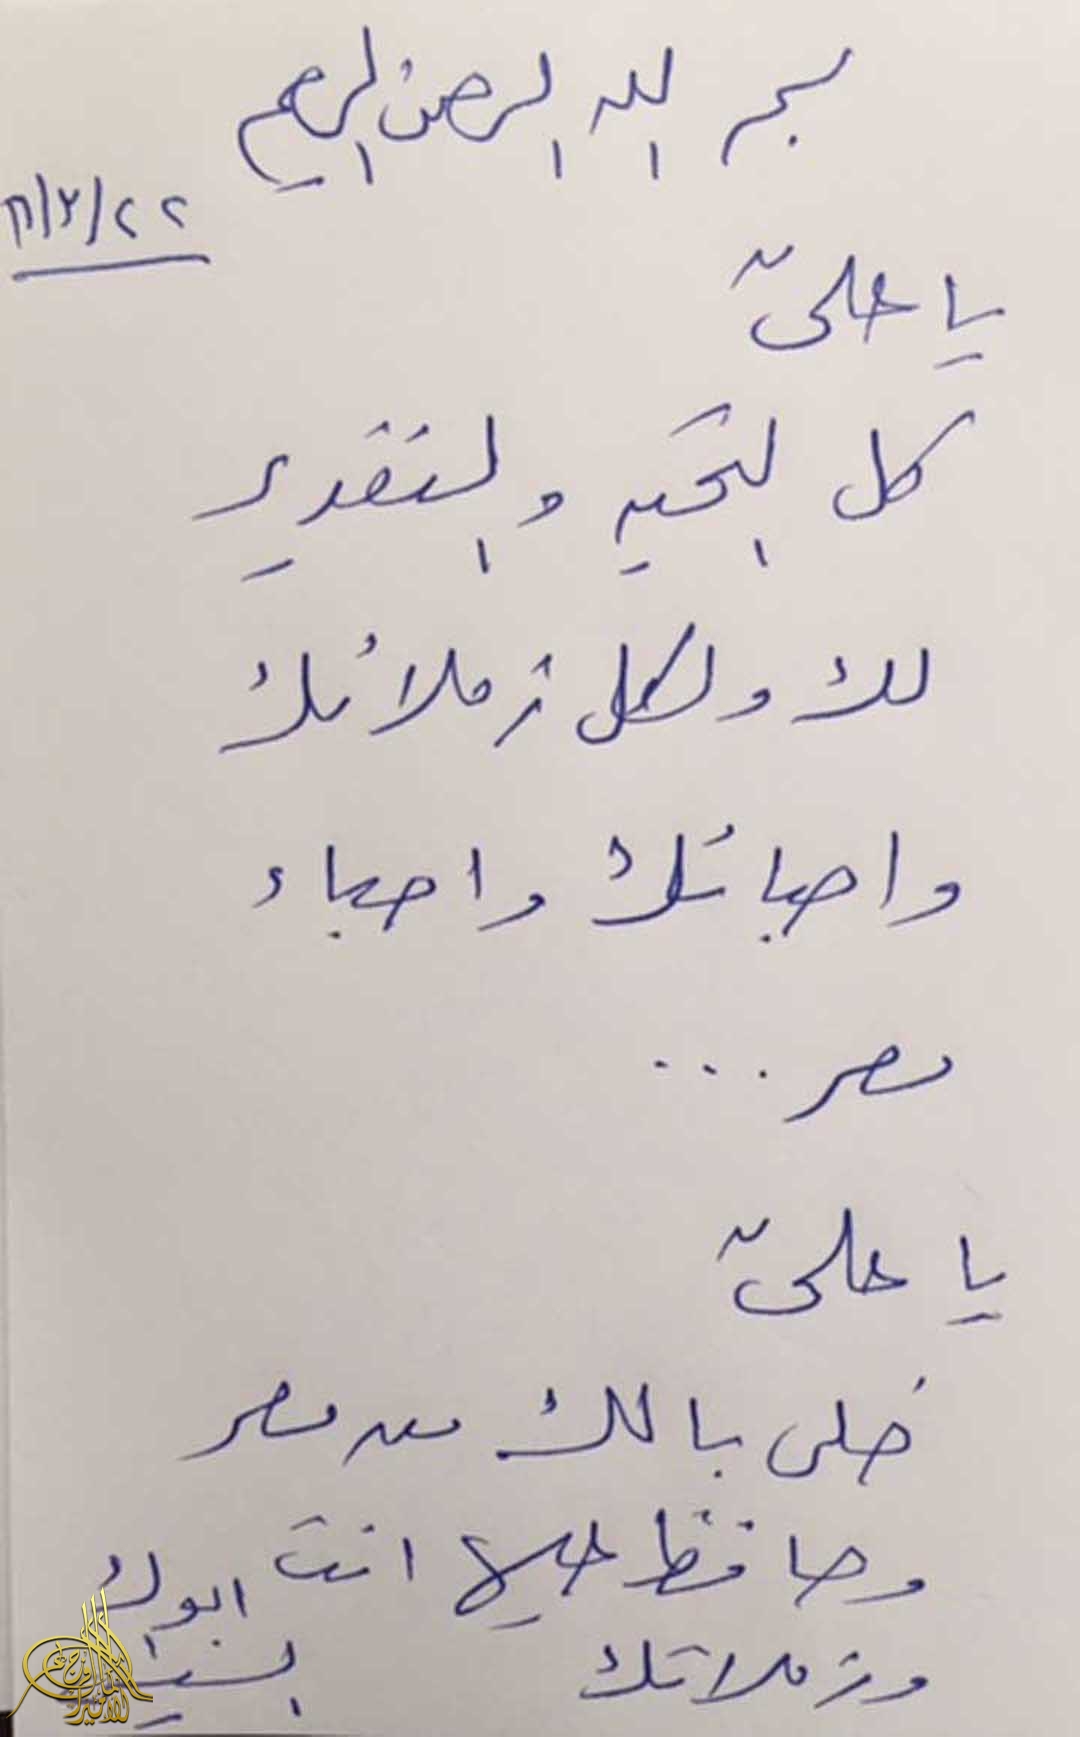 بسم الله الرحمن الرحيم
٢٢/٢/١٦
يا علىّ
كل التحيه والتقدير
لك ولكل زملائك
واحبائك واحباء
مصر ...
يا علىّ
خلى بالك من مصر
وحافظ عليها انت
وزملائك
ابوك